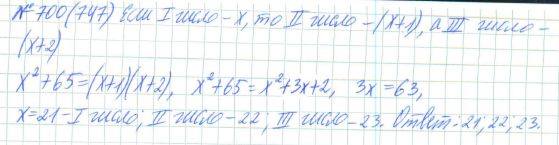 № 700(747) Если I число - x, то II число - (x+1), а III число -
(x+2)
x²+65=(x+1)(x+2), x²+65=x²+3x+2, 3x=63,
x=21 - I число; II число - 22; III число - 23. Ответ: 21; 22; 23.